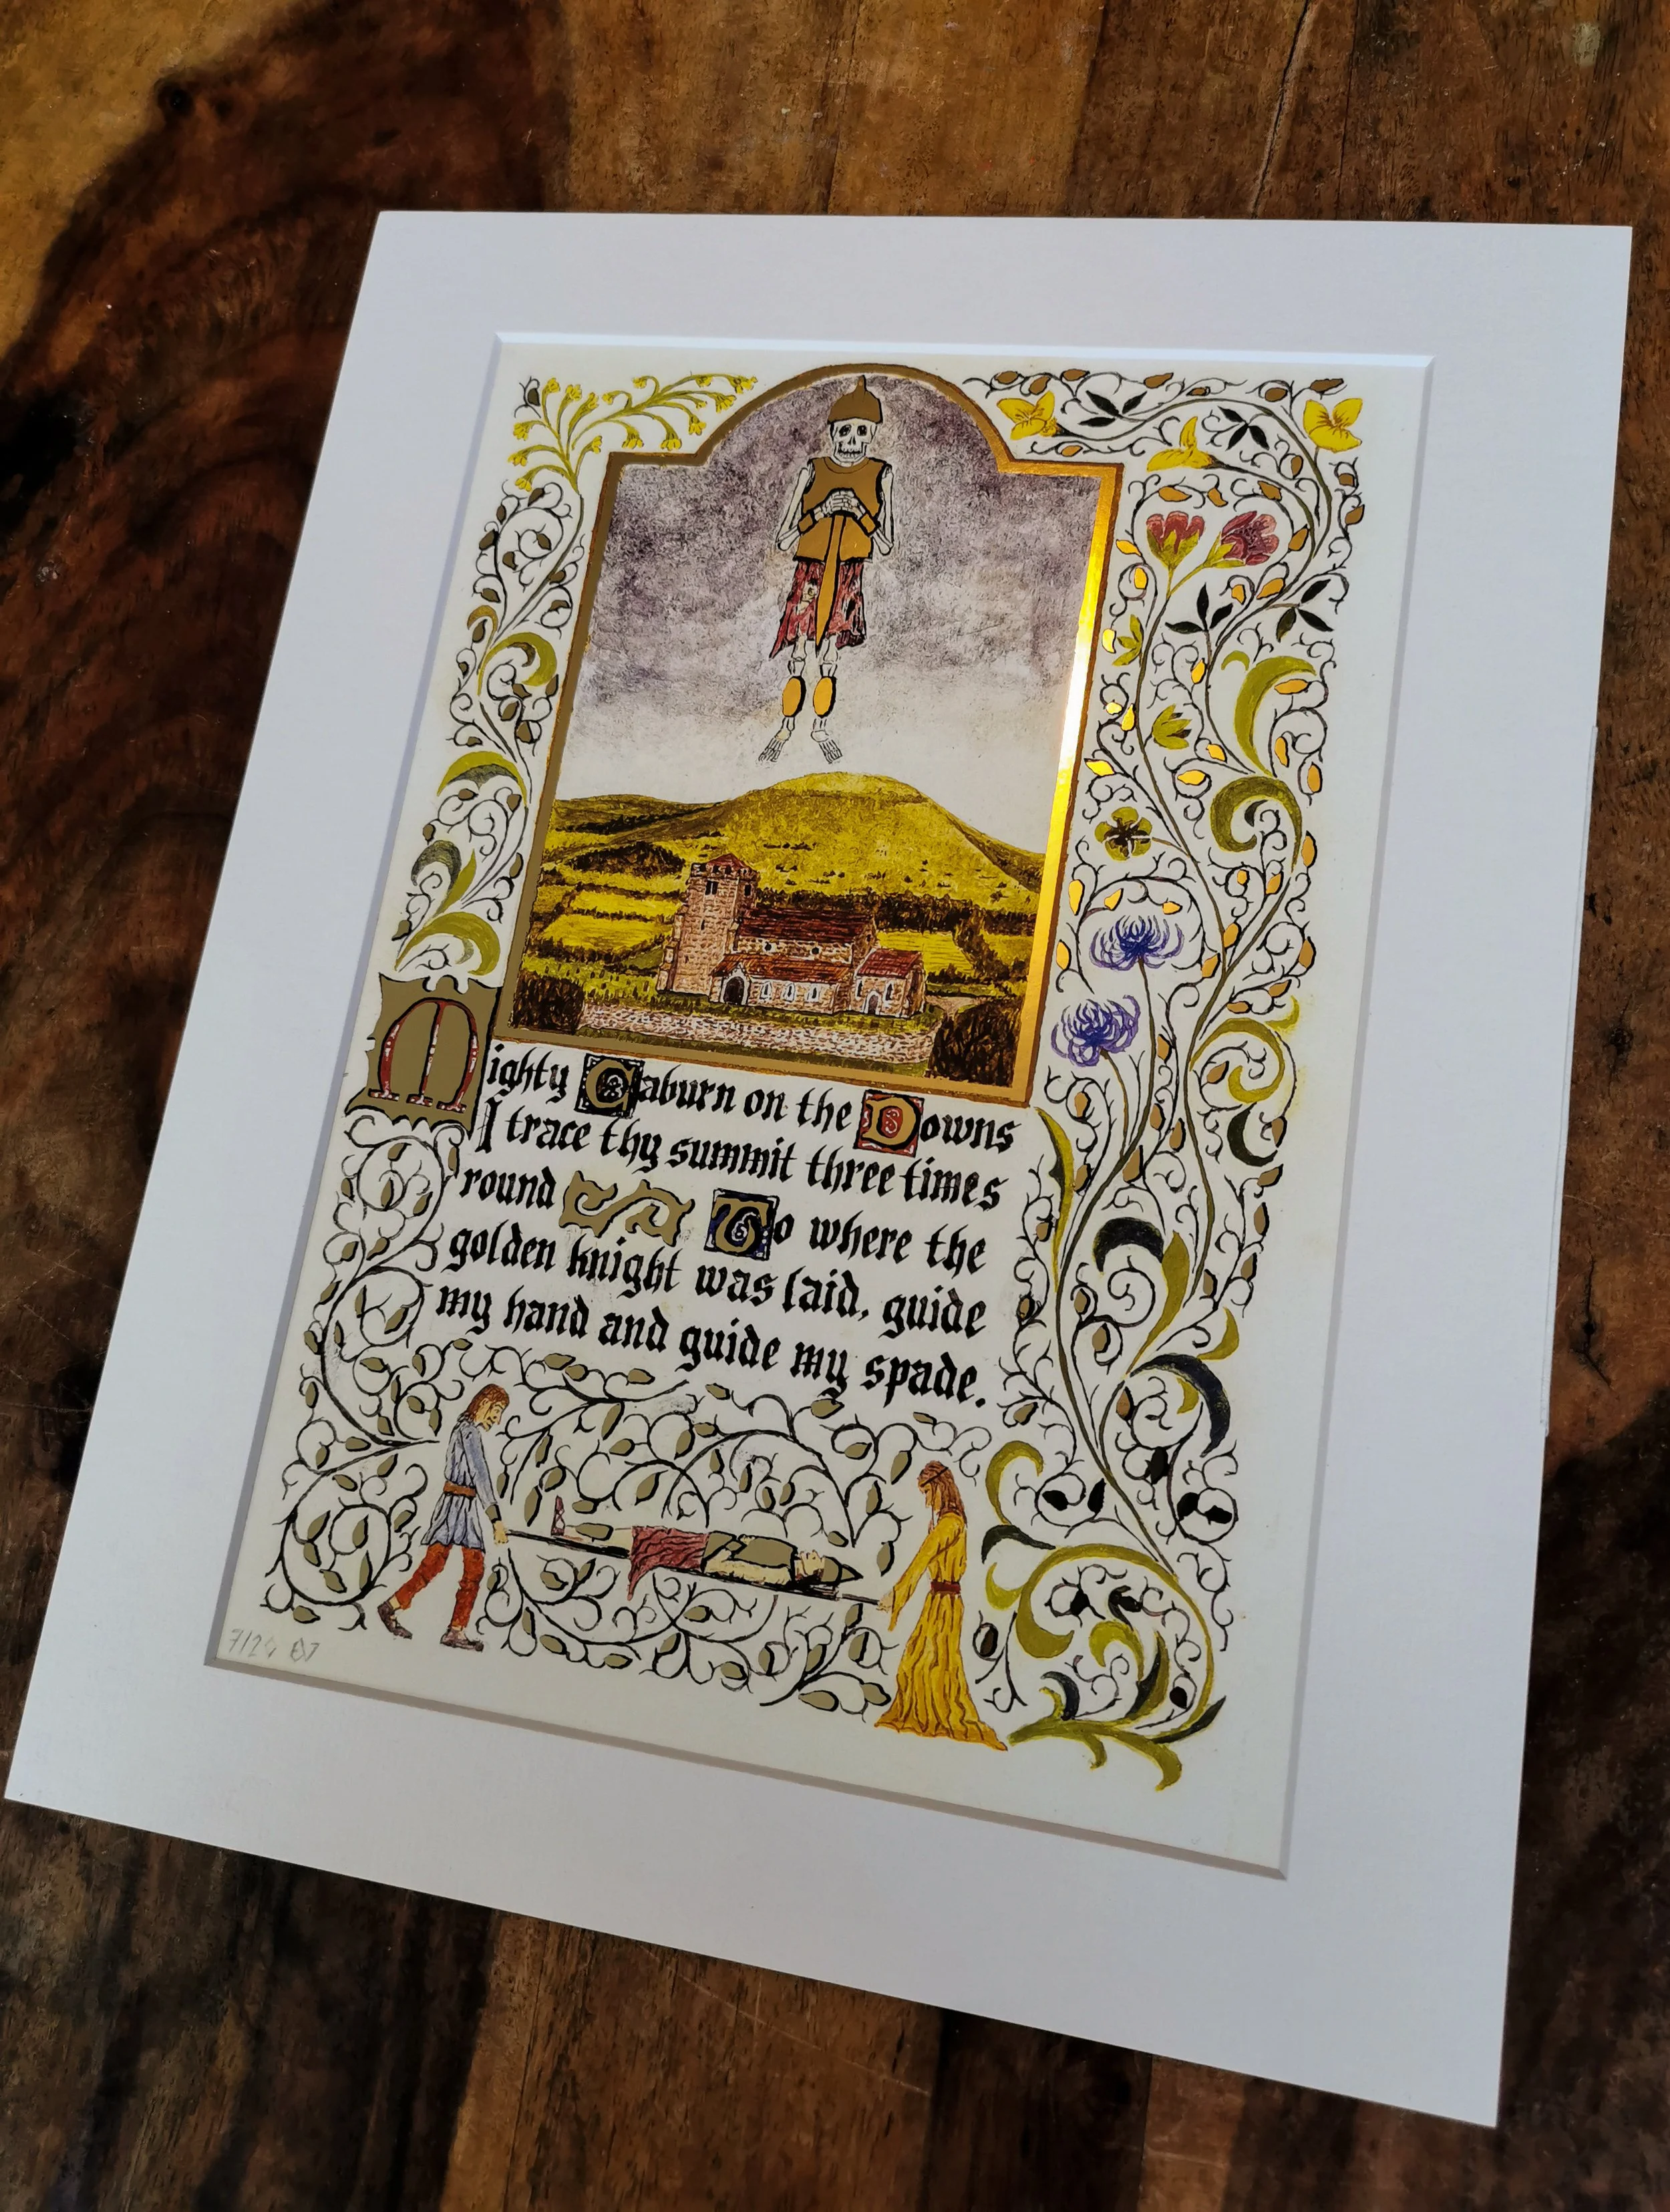 Mighty Caburn on the Downs
I trace thy summit three times
round To where the
golden knight was laid, guide
my hand and guide my spade.